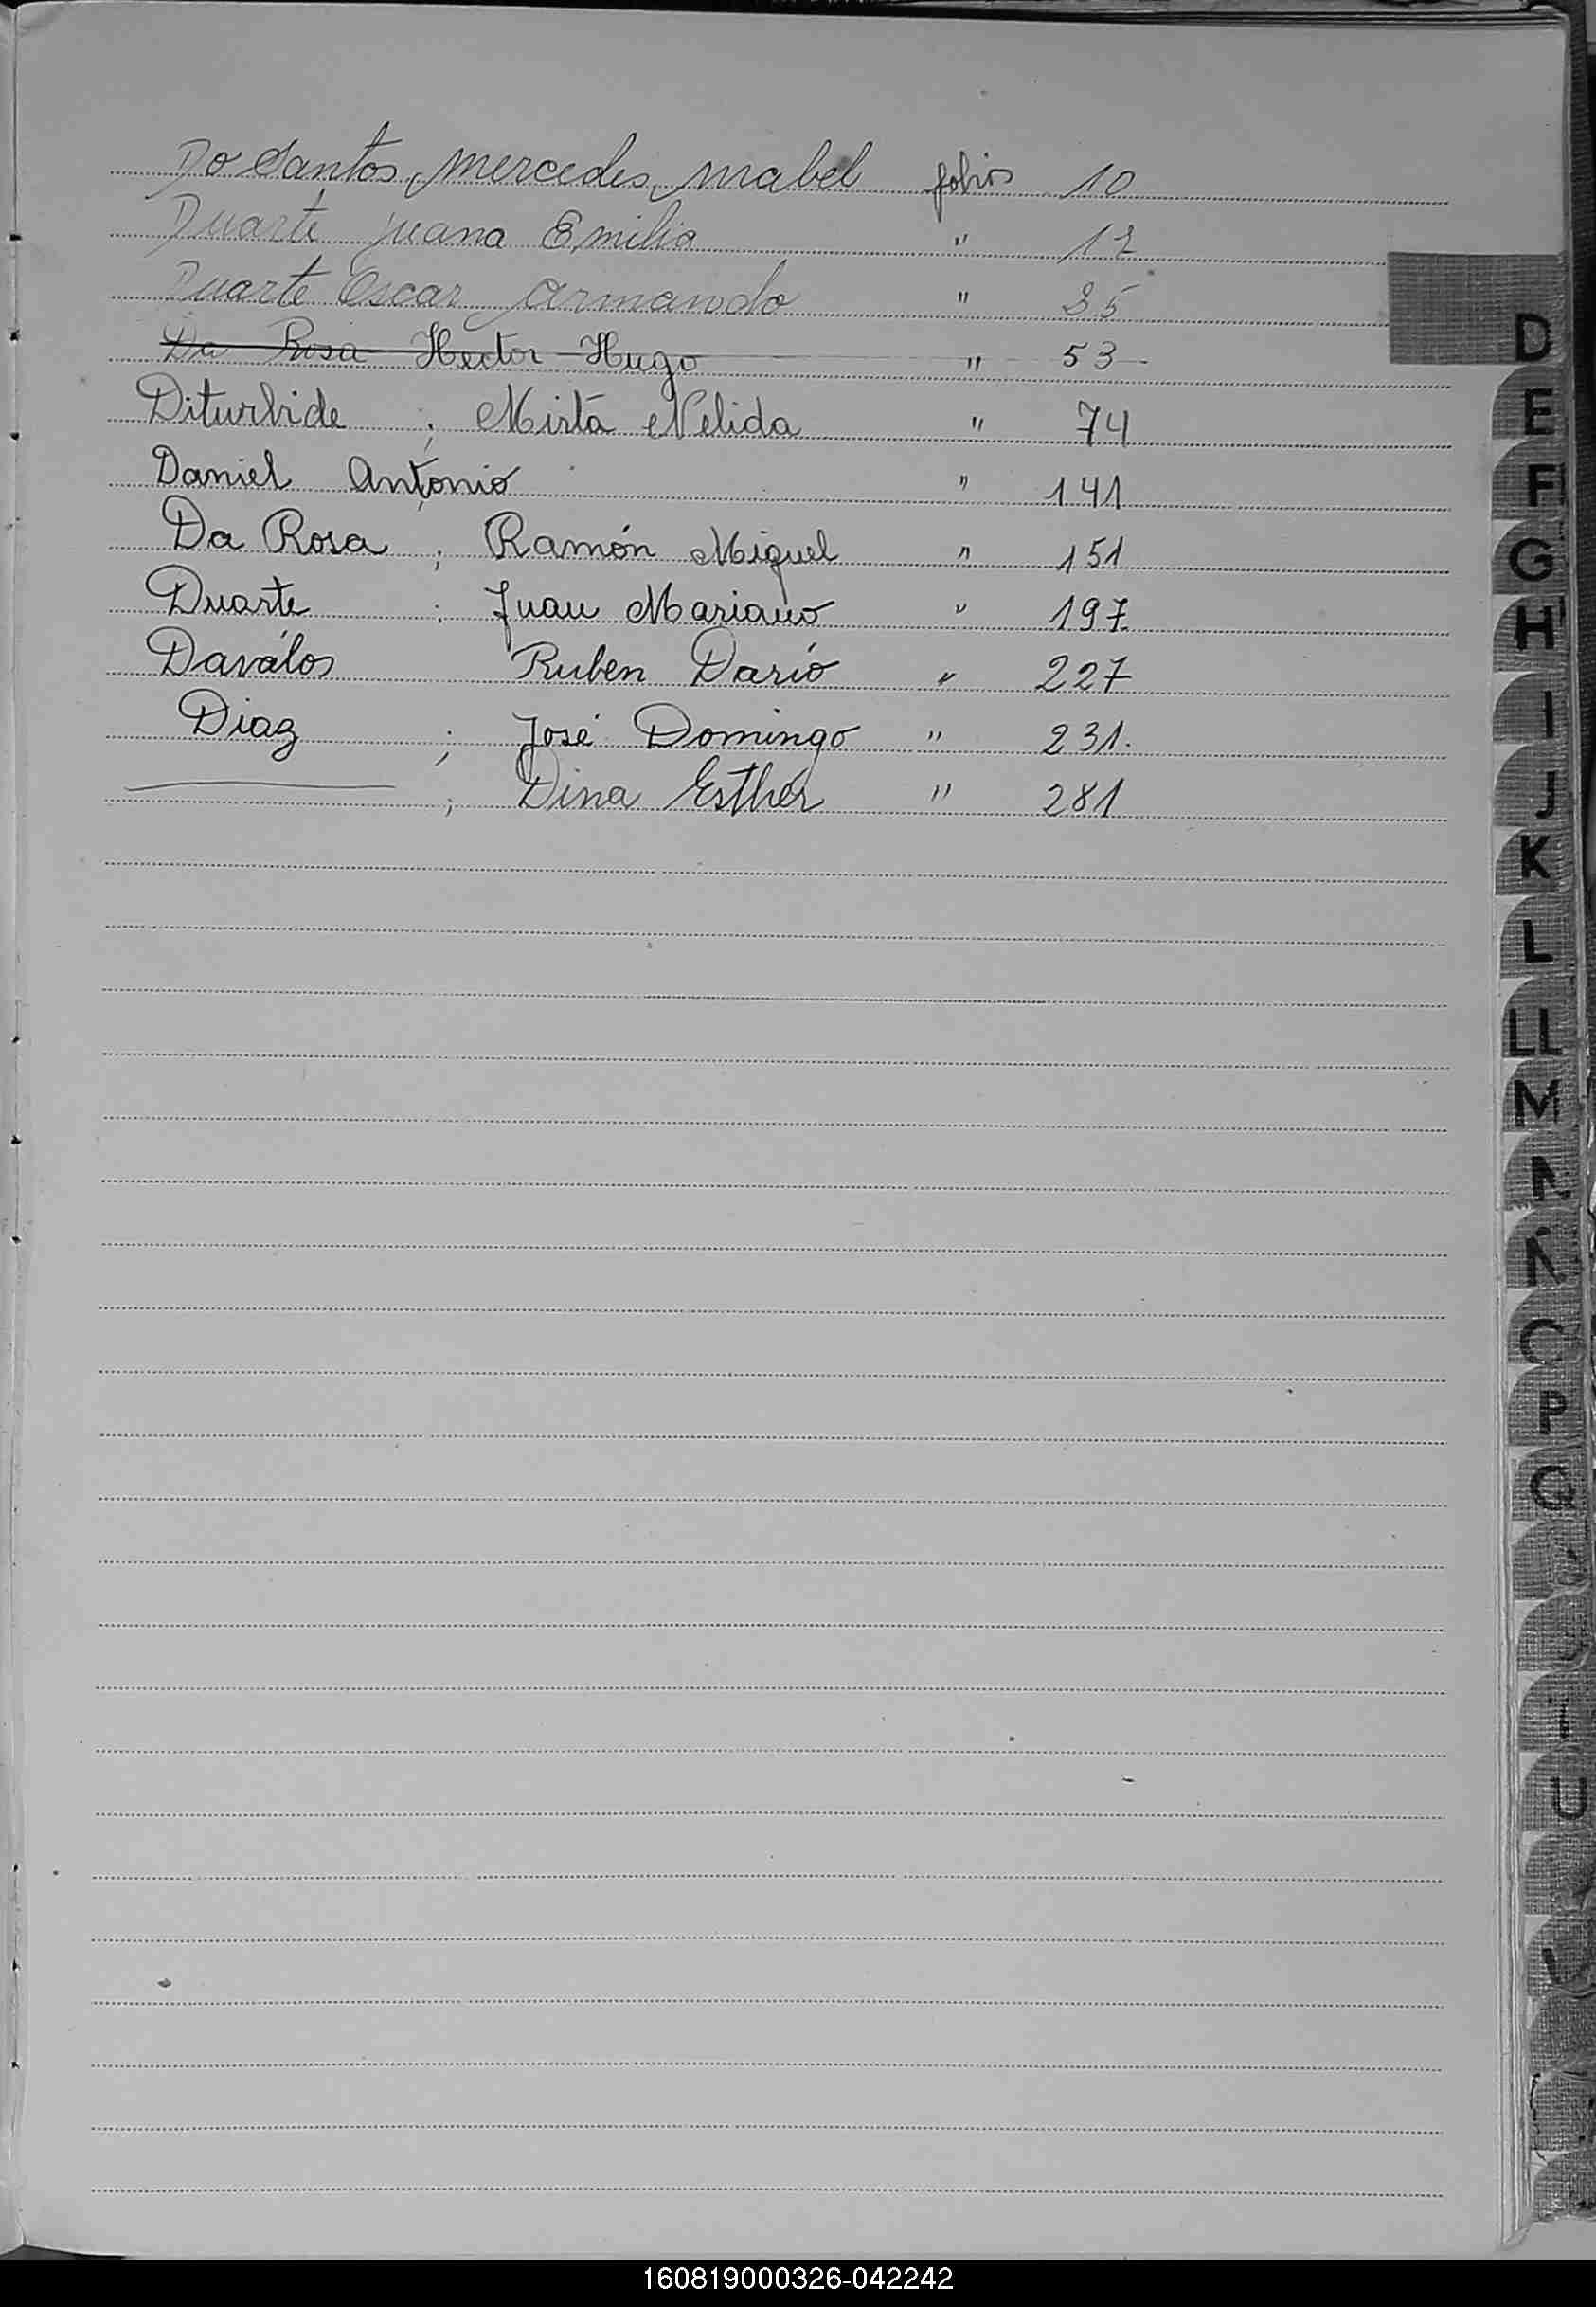 Do Santos, Mercedes, Mabel folios 10
Duarte Juana Emilia " 12
Duarte Oscar Armando " 35
Da Rosa Hector Hugo " 53
Diturbide ; Mirta Nelida " 74
Daniel Antonio " 141
Da Rosa ; Ramón Miguel " 151
Duarte : Juan Mariano " 197
Daválos Ruben Dario " 227
Diaz ; José Domingo " 231.
——— ; Dina Esther " 281
D
E
F
G
H
I
J
K
L
LL
M
N
Ñ
O
P
Q
U
160819000326-042242